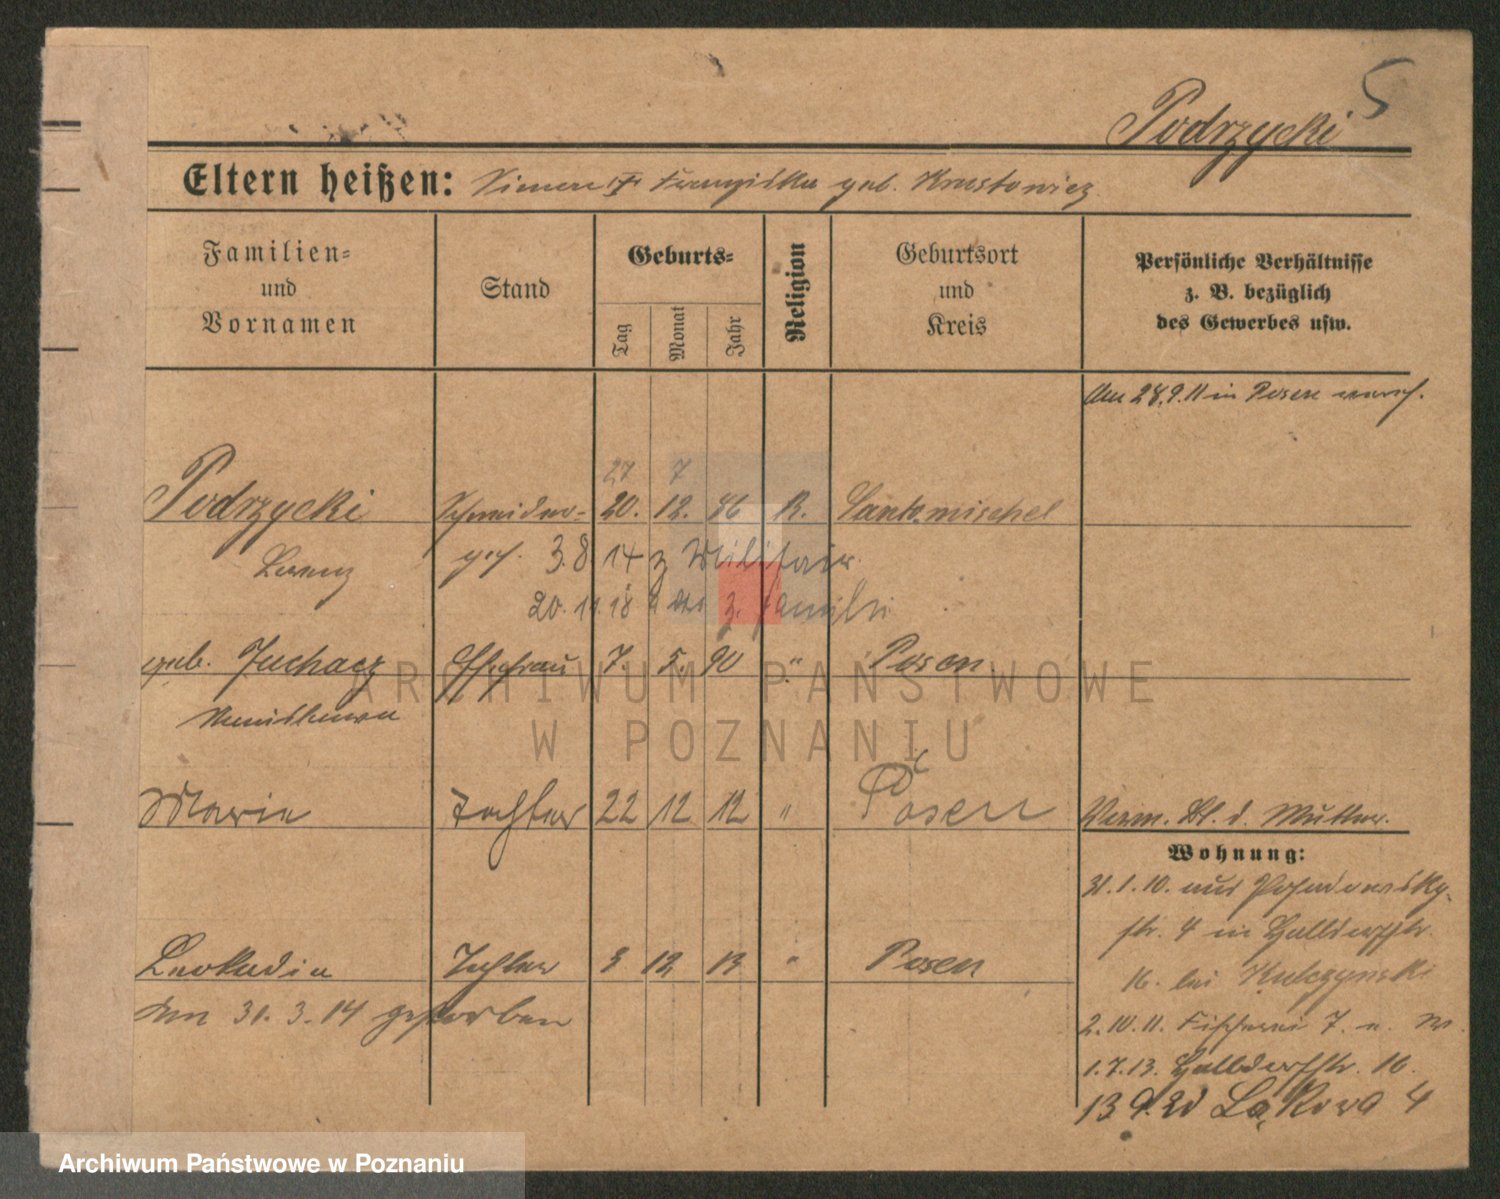 5
Podrzycki
Eltern heißen: Franziska geb.
Familien= und Vornamen
Stand
Geburts=
Tag
Monat
Jahr
Religion
Geburtsort und Kreis
Persönliche Verhältnisse z. B. bezüglich des Gewerbes usw.
Am 28.9.11 in Posen
27 7
Podrzycki Schneider= 20. 12. 86 R. Santomischel
Lorenz
3.8.14 z Militair
20.11.18 z. Familie
geb. Juchacz Ehefrau 7. 5. 90 " Posen
Marie Tochter 22 12 12 " Posen
Verm. Bl. d. Mutter.
Wohnung:
31.1.10. aus
str. 4 in
16. bei Kulczynski
Leokadia Tochter 3 12 13 " Posen
Am 31.3.14 gestorben
2.10.11. Fischerei 7.
1.7.13. 16.
13 9.20 Łąkowa 4
ARCHIWUM PAŃSTWOWE
W POZNANIU
Archiwum Państwowe w Poznaniu